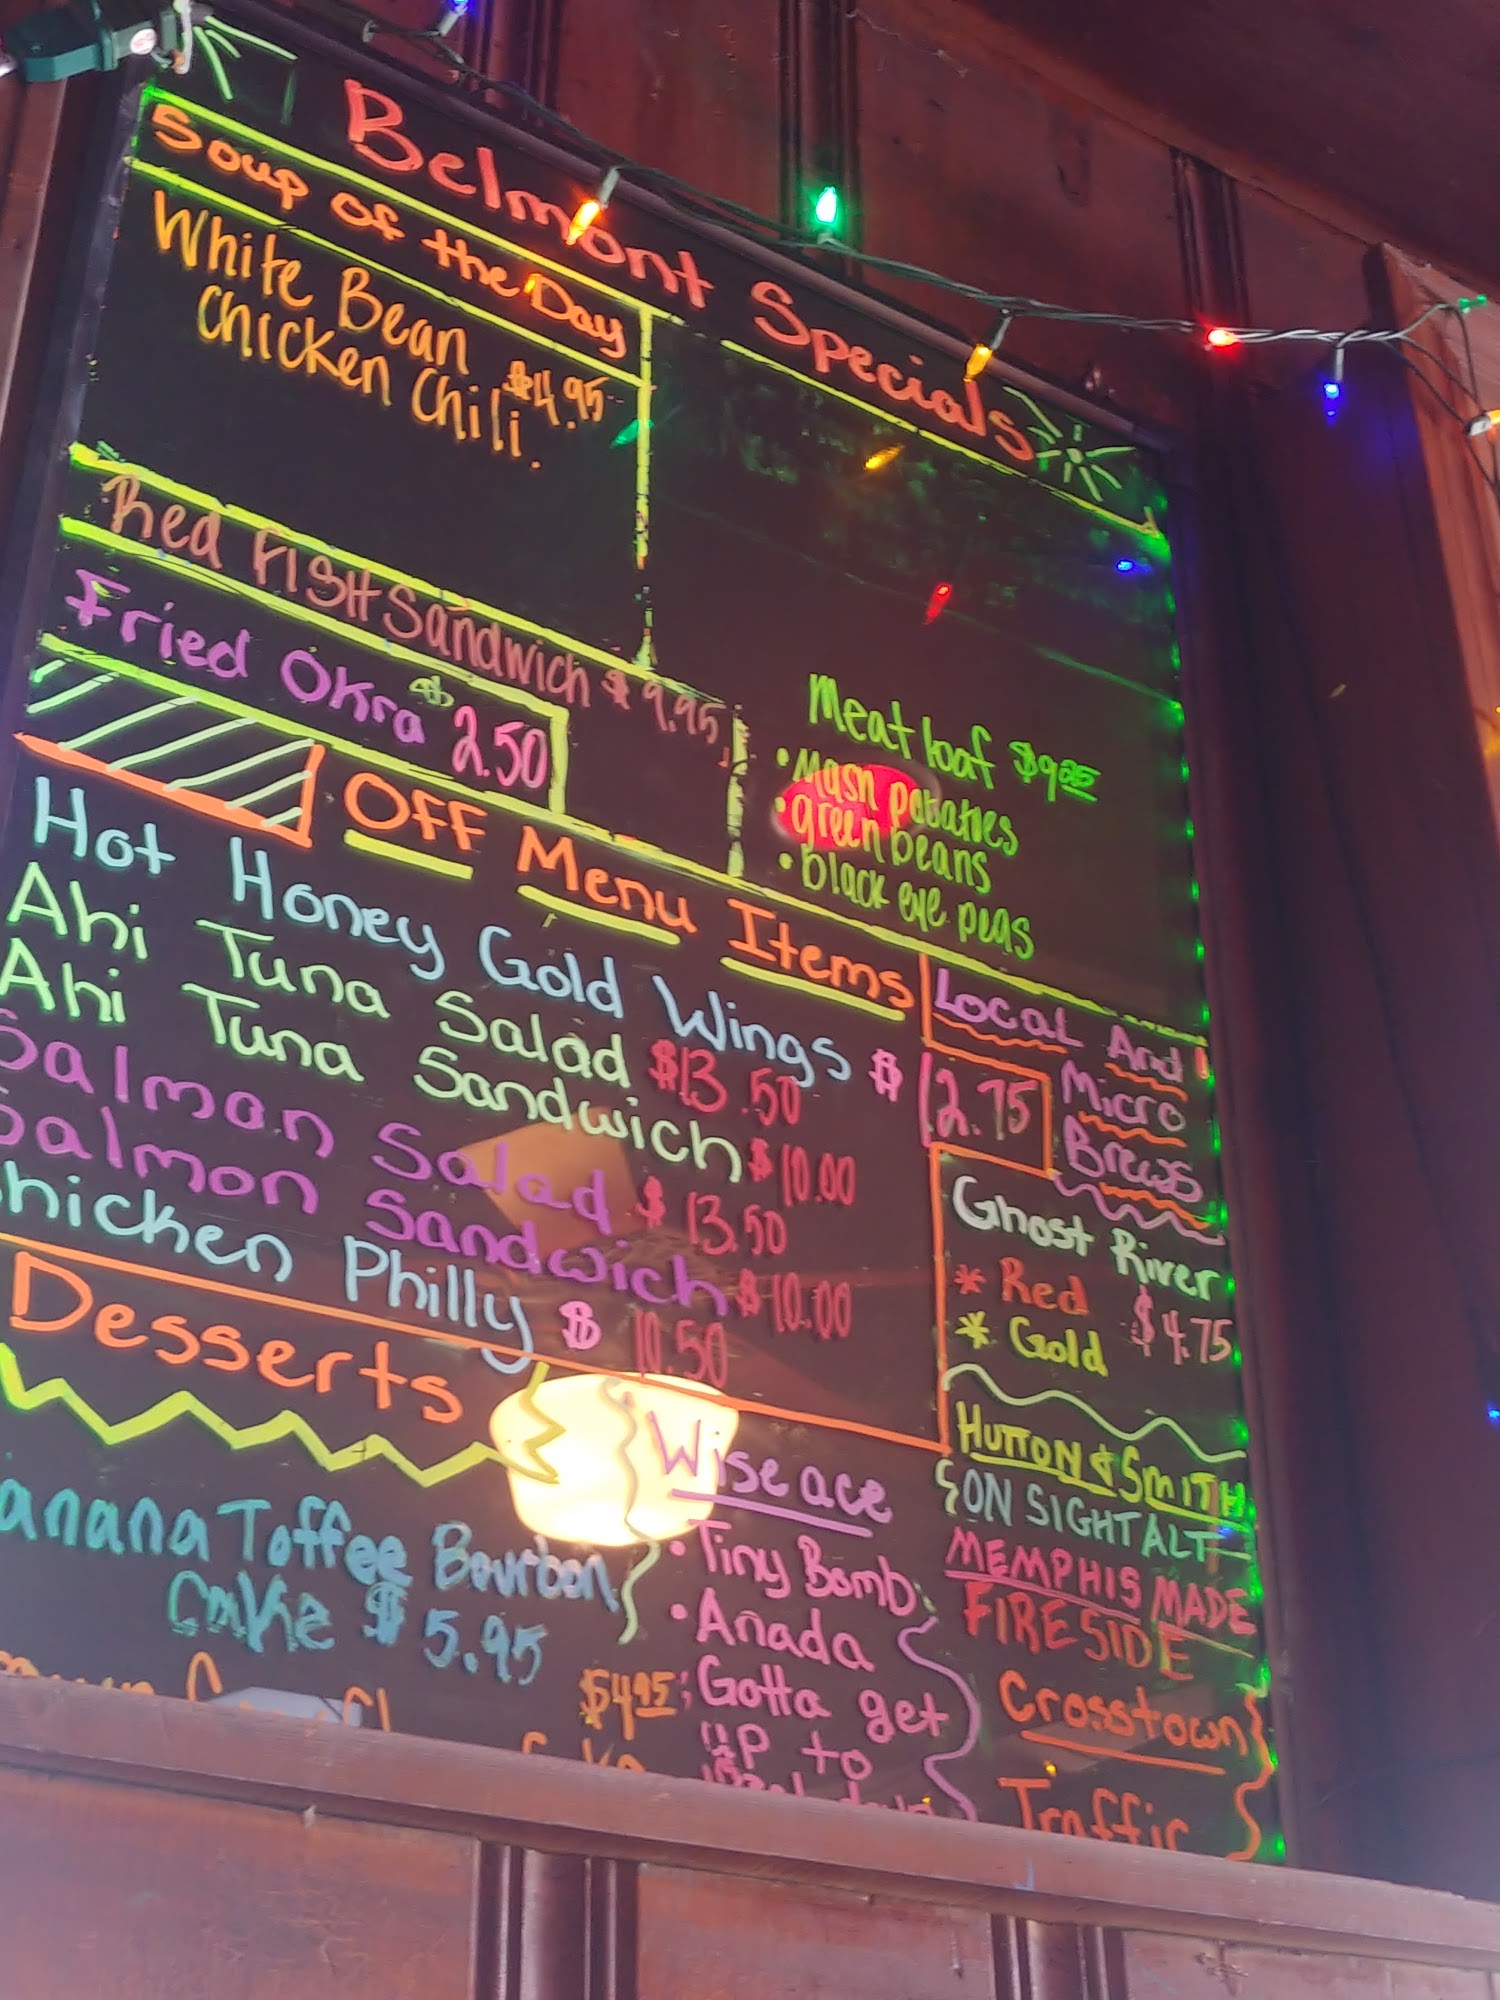 Belmont Specials
Soup of the Day
White Bean
Chicken Chili $4.95
Red FISH Sandwich $9.95
Fried Okra $2.50
Meat loaf
• Mash potatoes
• green beans
• black eye peas
OFF Menu Items
Hot Honey Gold Wings $12.75
Ahi Tuna Salad $13.50
Ahi Tuna Sandwich $10.00
Salman Salad $13.50
Salmon Sandwich $10.00
hicken Philly $10.50
Desserts
anana Toffee Bourbon
Cake $5.95
$4.95
Wise ace
• Tiny Bomb
• Anada
• Gotta get
up to
Local And
Micro
Brews
Ghost River
* Red $4.75
* Gold
HUTTON & SMITH
ON SIGHT ALT
MEMPHIS MADE
FIRESIDE
Crosstown
Traffic